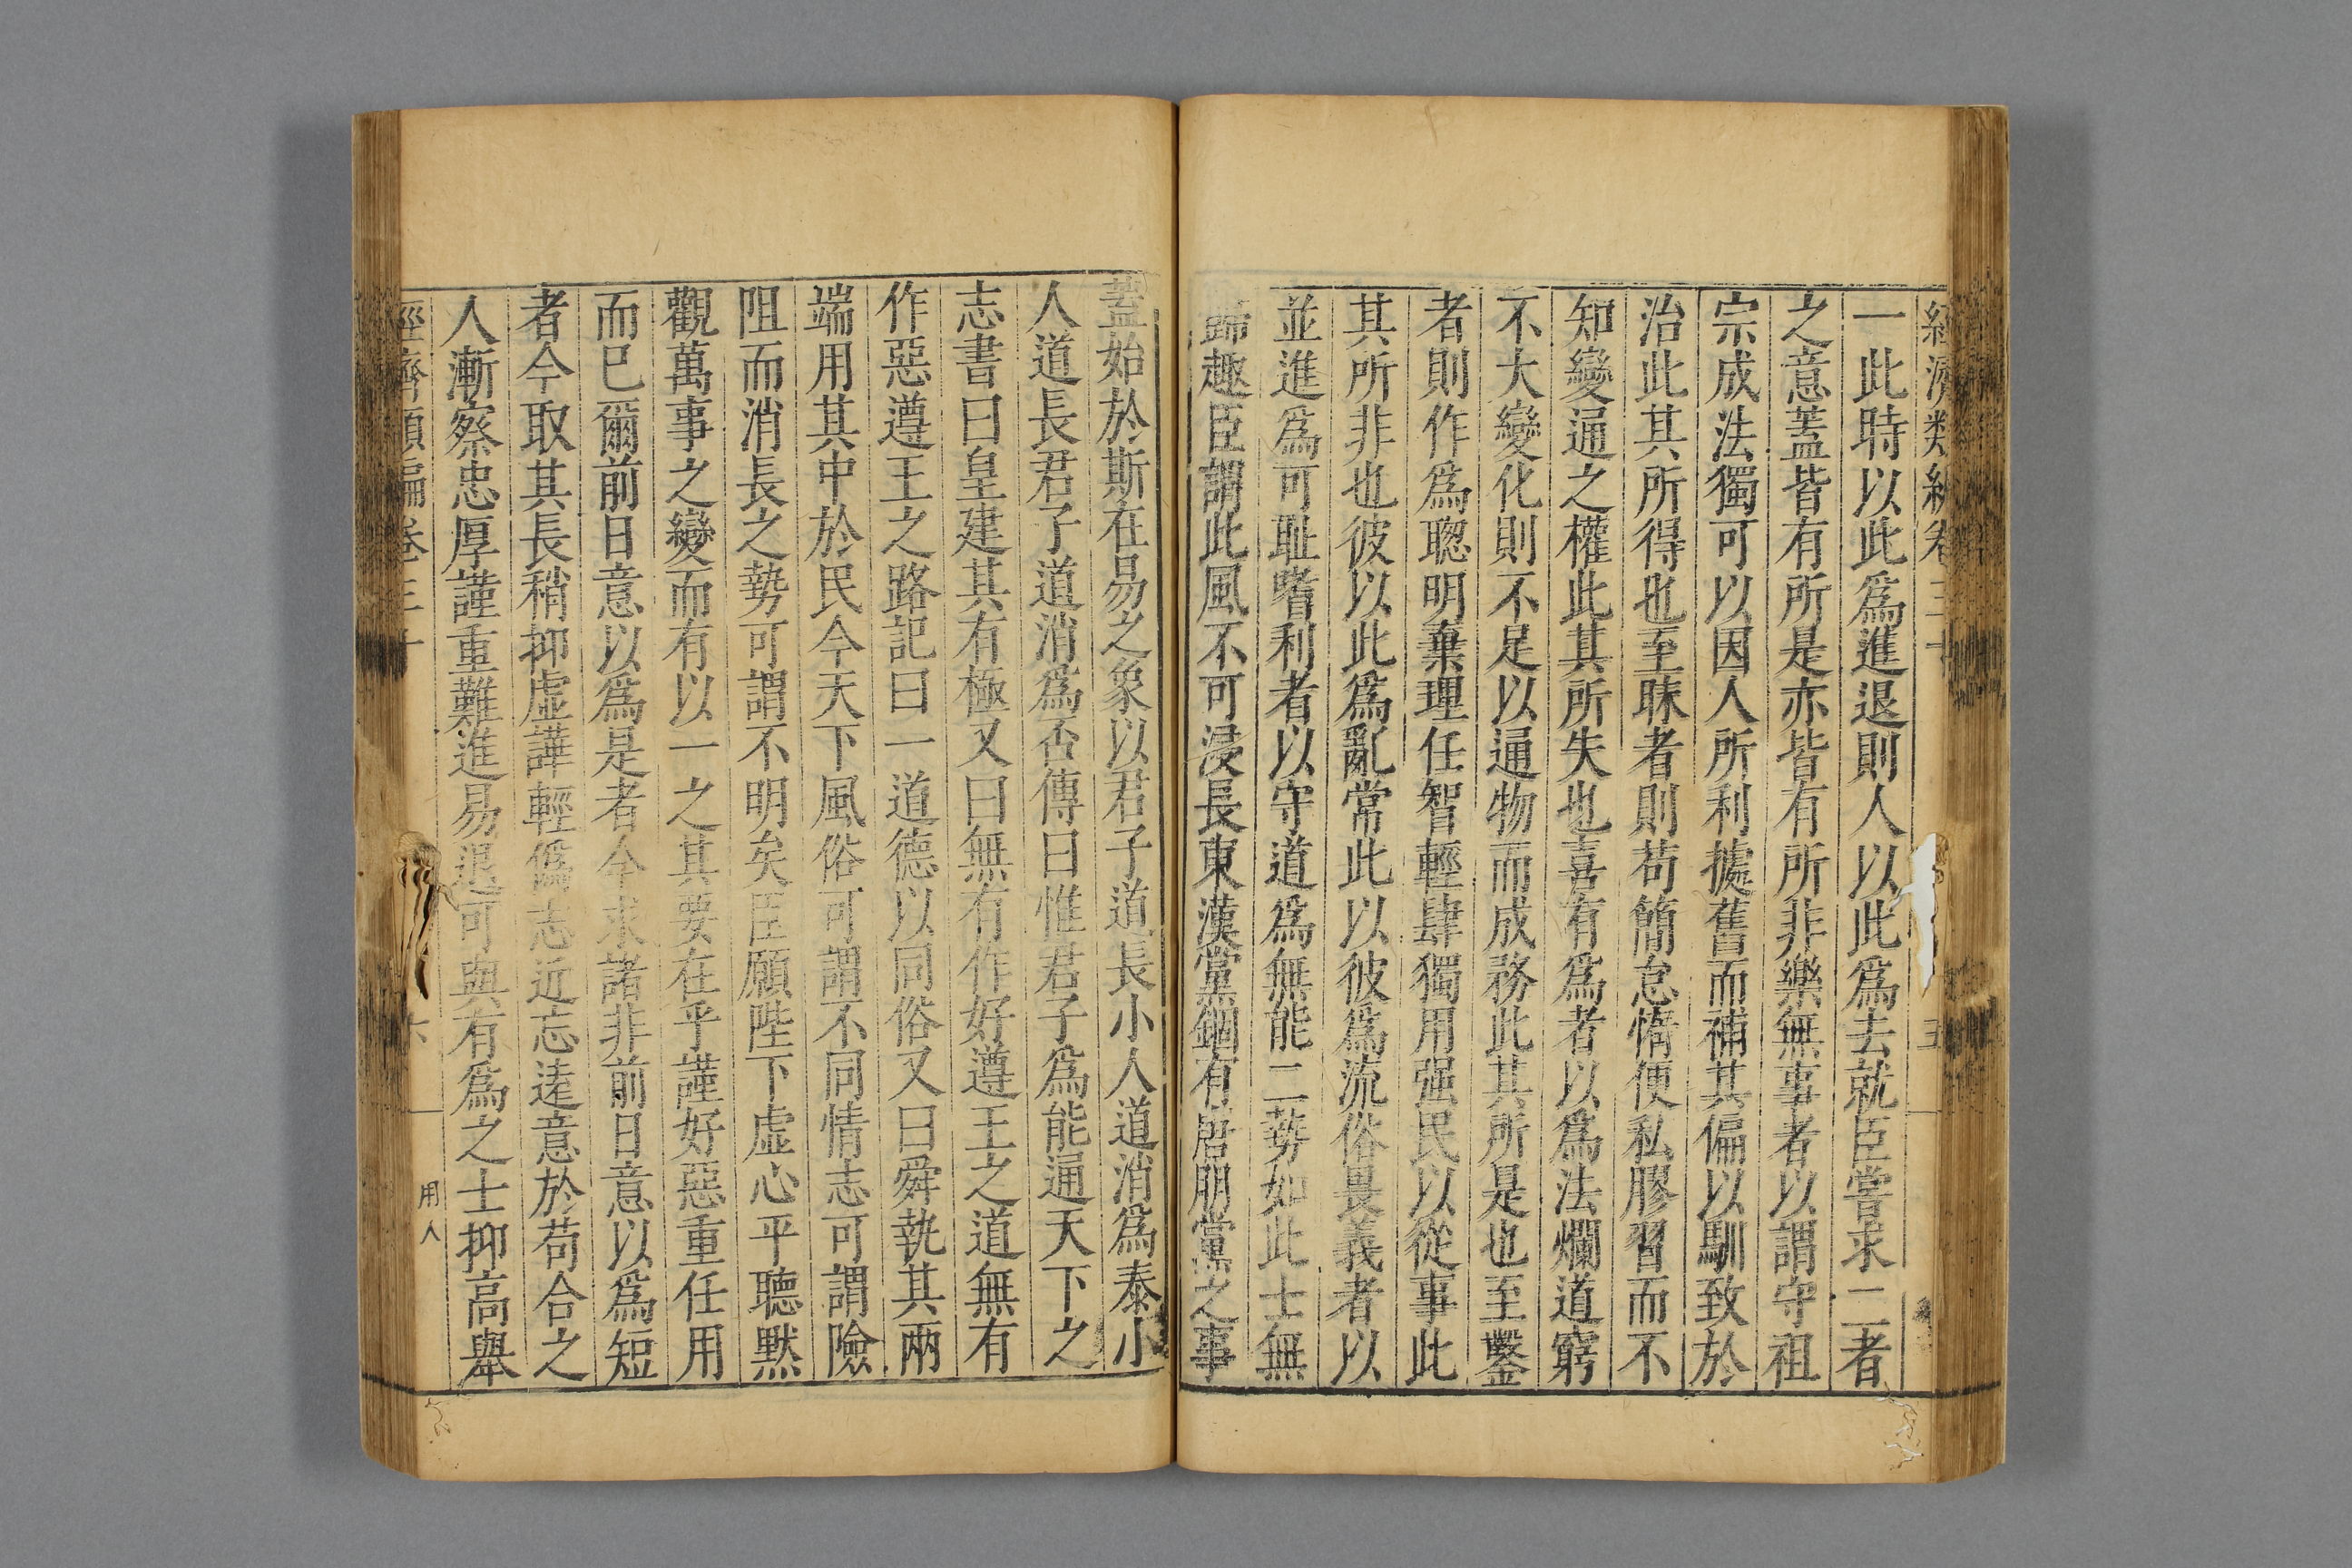 一此時以此爲進退則人以此爲去就臣嘗求二者
之意蓋皆有所是亦皆有所非樂無事者以謂守祖
宗成法獨可以因人所利據舊而補其偏以馴致於
治此其所得也至昧者則苟簡怠惰便私膠習而不
知變通之權此其所失也喜有爲者以爲法爛道窮
不大變化則不足以通物而成務此其所是也至鑿
者則作爲聰明棄理任智輕肆獨用强民以從事此
其所非也彼以此爲亂常此以彼爲流俗畏義者以
並進爲可耻嗜利者以守道爲無能二勢如此士無
歸趣臣謂此風不可浸長東漢黨錮有唐朋黨之事
蓋始於斯在易之象以君子道長小人道消爲泰小
人道長君子道消爲否傳曰惟君子爲能通天下之
志書曰皇建其有極又曰無有作好遵王之道無有
作惡遵王之路記曰一道德以同俗又曰舜執其兩
端用其中於民今天下風俗可謂不同情志可謂險
阻而消長之勢可謂不明矣臣願陛下虛心平聽默
觀萬事之變而有以一之其要在乎謹好惡重任用
而已爾前日意以爲是者今求諸非前日意以爲短
者今取其長稍抑虛譁輕僞志近忘遠意於苟合之
人漸察忠厚謹重難進易退可與有爲之士抑高舉
經濟類編卷三十
六
用人